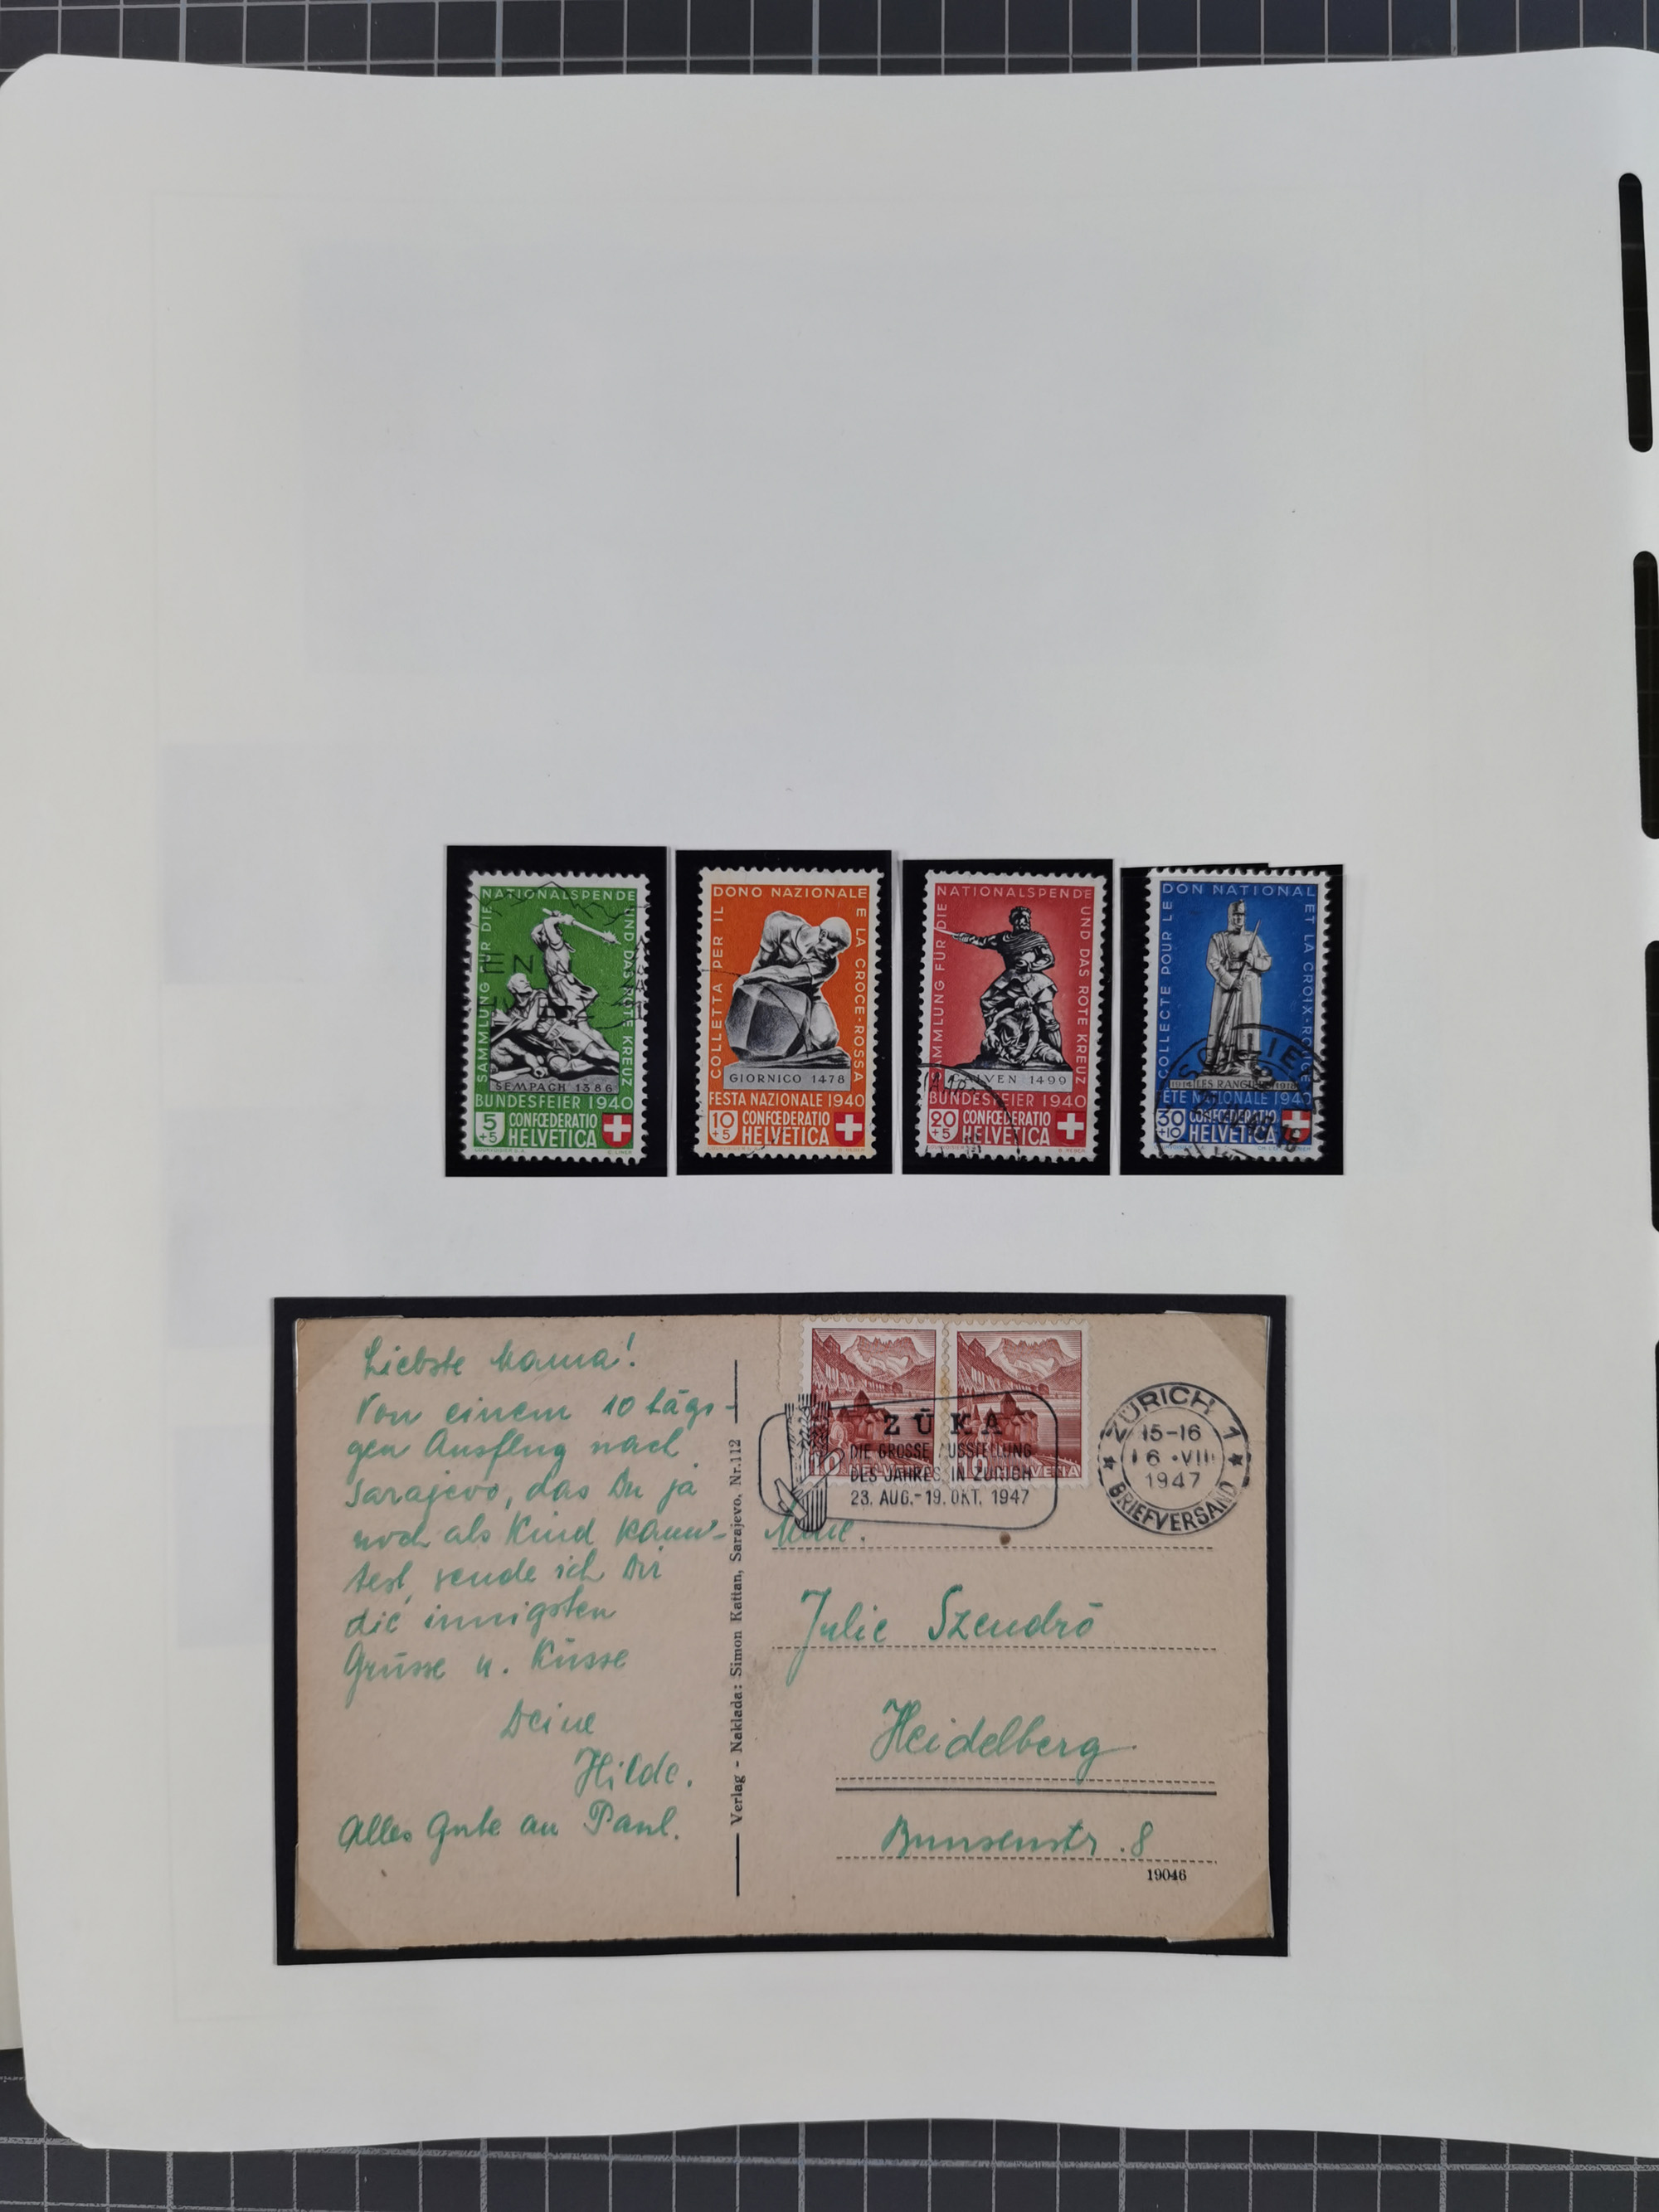 NATIONALSPENDE
SAMMLUNG FÜR DIE
UND DAS ROTE KREUZ
SEMPACH 1386
BUNDESFEIER 1940
5
+5
CONFŒDERATIO
HELVETICA
DONO NAZIONALE
COLLETTA PER IL
E LA CROCE-ROSSA
GIORNICO 1478
FESTA NAZIONALE 1940
10
+5
CONFŒDERATIO
HELVETICA
NATIONALSPENDE
SAMMLUNG FÜR DIE
UND DAS ROTE KREUZ
CALVEN 1499
BUNDESFEIER 1940
20
+5
CONFŒDERATIO
HELVETICA
DON NATIONAL
COLLECTE POUR LE
ET LA CROIX-ROUGE
1914 LES RANGIERS 1918
FÊTE NATIONALE 1940
30
+10
CONFŒDERATIO
HELVETICA
Liebste Mama!
Von einem 10 tägi-
gen Ausflug nach
Sarajevo, das Du ja
noch als Kind kann-
test, sende ich Dir
die innigsten
Grüsse u. Küsse
Deine
Hilde.
Alles Gute an Paul.
Verlag - Naklada: Simon Kattan, Sarajevo, Nr. 112
10 HELVETIA
10 HELVETIA
ZÜKA
DIE GROSSE AUSSTELLUNG
DES JAHRES IN ZÜRICH
23. AUG.-19. OKT. 1947
ZÜRICH 1
15-16
16.VII
1947
BRIEFVERSAND
Julie Szendrö
Heidelberg
Bunsenstr. 8
19046